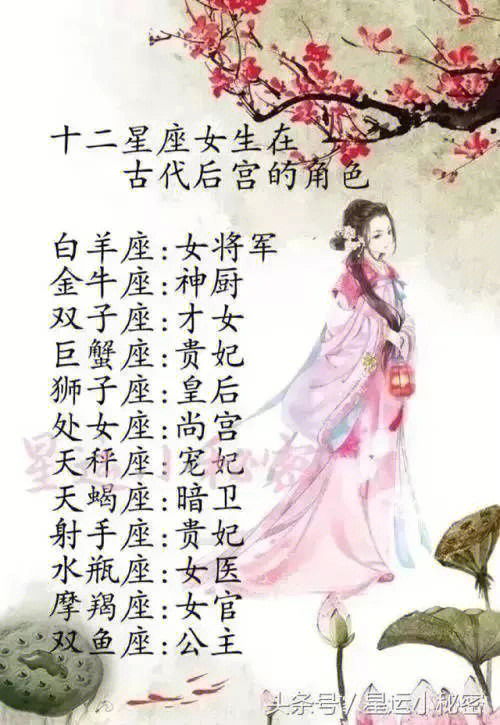 十二星座女生在
古代后宫的角色
白羊座:女将军
金牛座:神厨
双子座:才女
巨蟹座:贵妃
狮子座:皇后
处女座:尚宫
天秤座:宠妃
天蝎座:暗卫
射手座:贵妃
水瓶座:女医
摩羯座:女官
双鱼座:公主
星运小秘密
头条号/星运小秘密